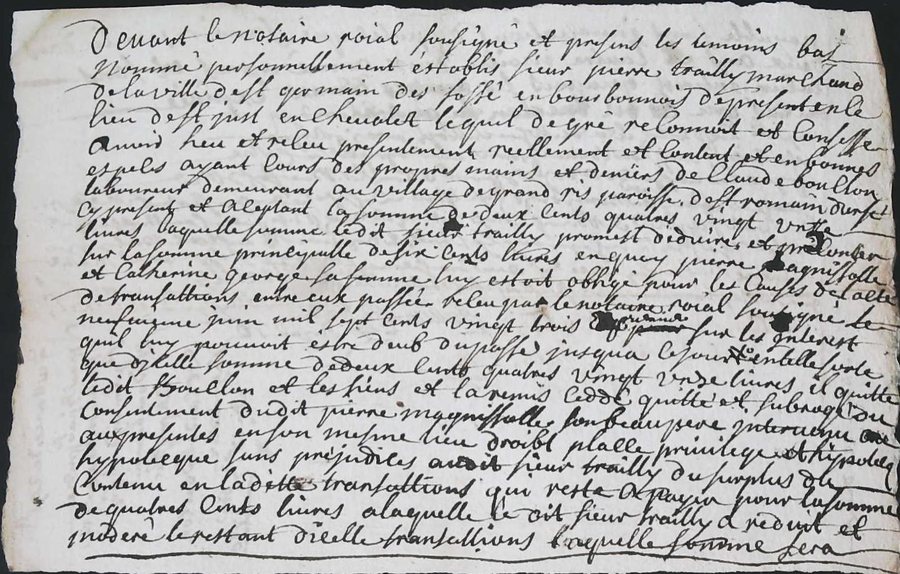 Devant le notaire roial sousigné et presens les temoins bas
nommé personnellement establis sieur pierre trailly marchand
de la ville de st germain des fossé en bourbonnois de present en le
lieu de st just en chevalet lequel de gré reconnoit et confesse
avoir heu et receu presentement reellement et content et en bonnes
espeses ayant cours des propres mains et deniers de Claude boullon
laboureur demeurant au village de grand ris paroisse de st romain durfé
cy present et aceptant la somme de deux cents quatres vingt unze
livres laquelle somme ledit sieur trailly promest deduire et precompter
sur la somme principalle de six cents livres en quoy pierre magnissolle
et Catherine george sa femme luy estoit obligé pour les causes de l'acte
de transattions entre eux passée receu par le notaire roial sousigné le
neufvieme juin mil sept cents vingt trois sur les interest
quil luy pouvoit estre deub du passé jusqua ce jour en telle sorte
que dicelle somme de deux cents quatres vingt unze livres il quitte
ledit Boullon et les siens et la remis cedde quitte et subrogé du
consentement dudit pierre magnissolle son beau pere intervenu
aux presentes en son mesme lieu droibt plasse privilege et hypoteq
hypotecque sans prejudices audit sieur trailly du surplus de
contenu en laditte transattions qui reste a payer pour la somme
de quatres cents livres a laquelle le dit sieur trailly a reduit et
moderé le restant dicelle transattions laquelle somme sera